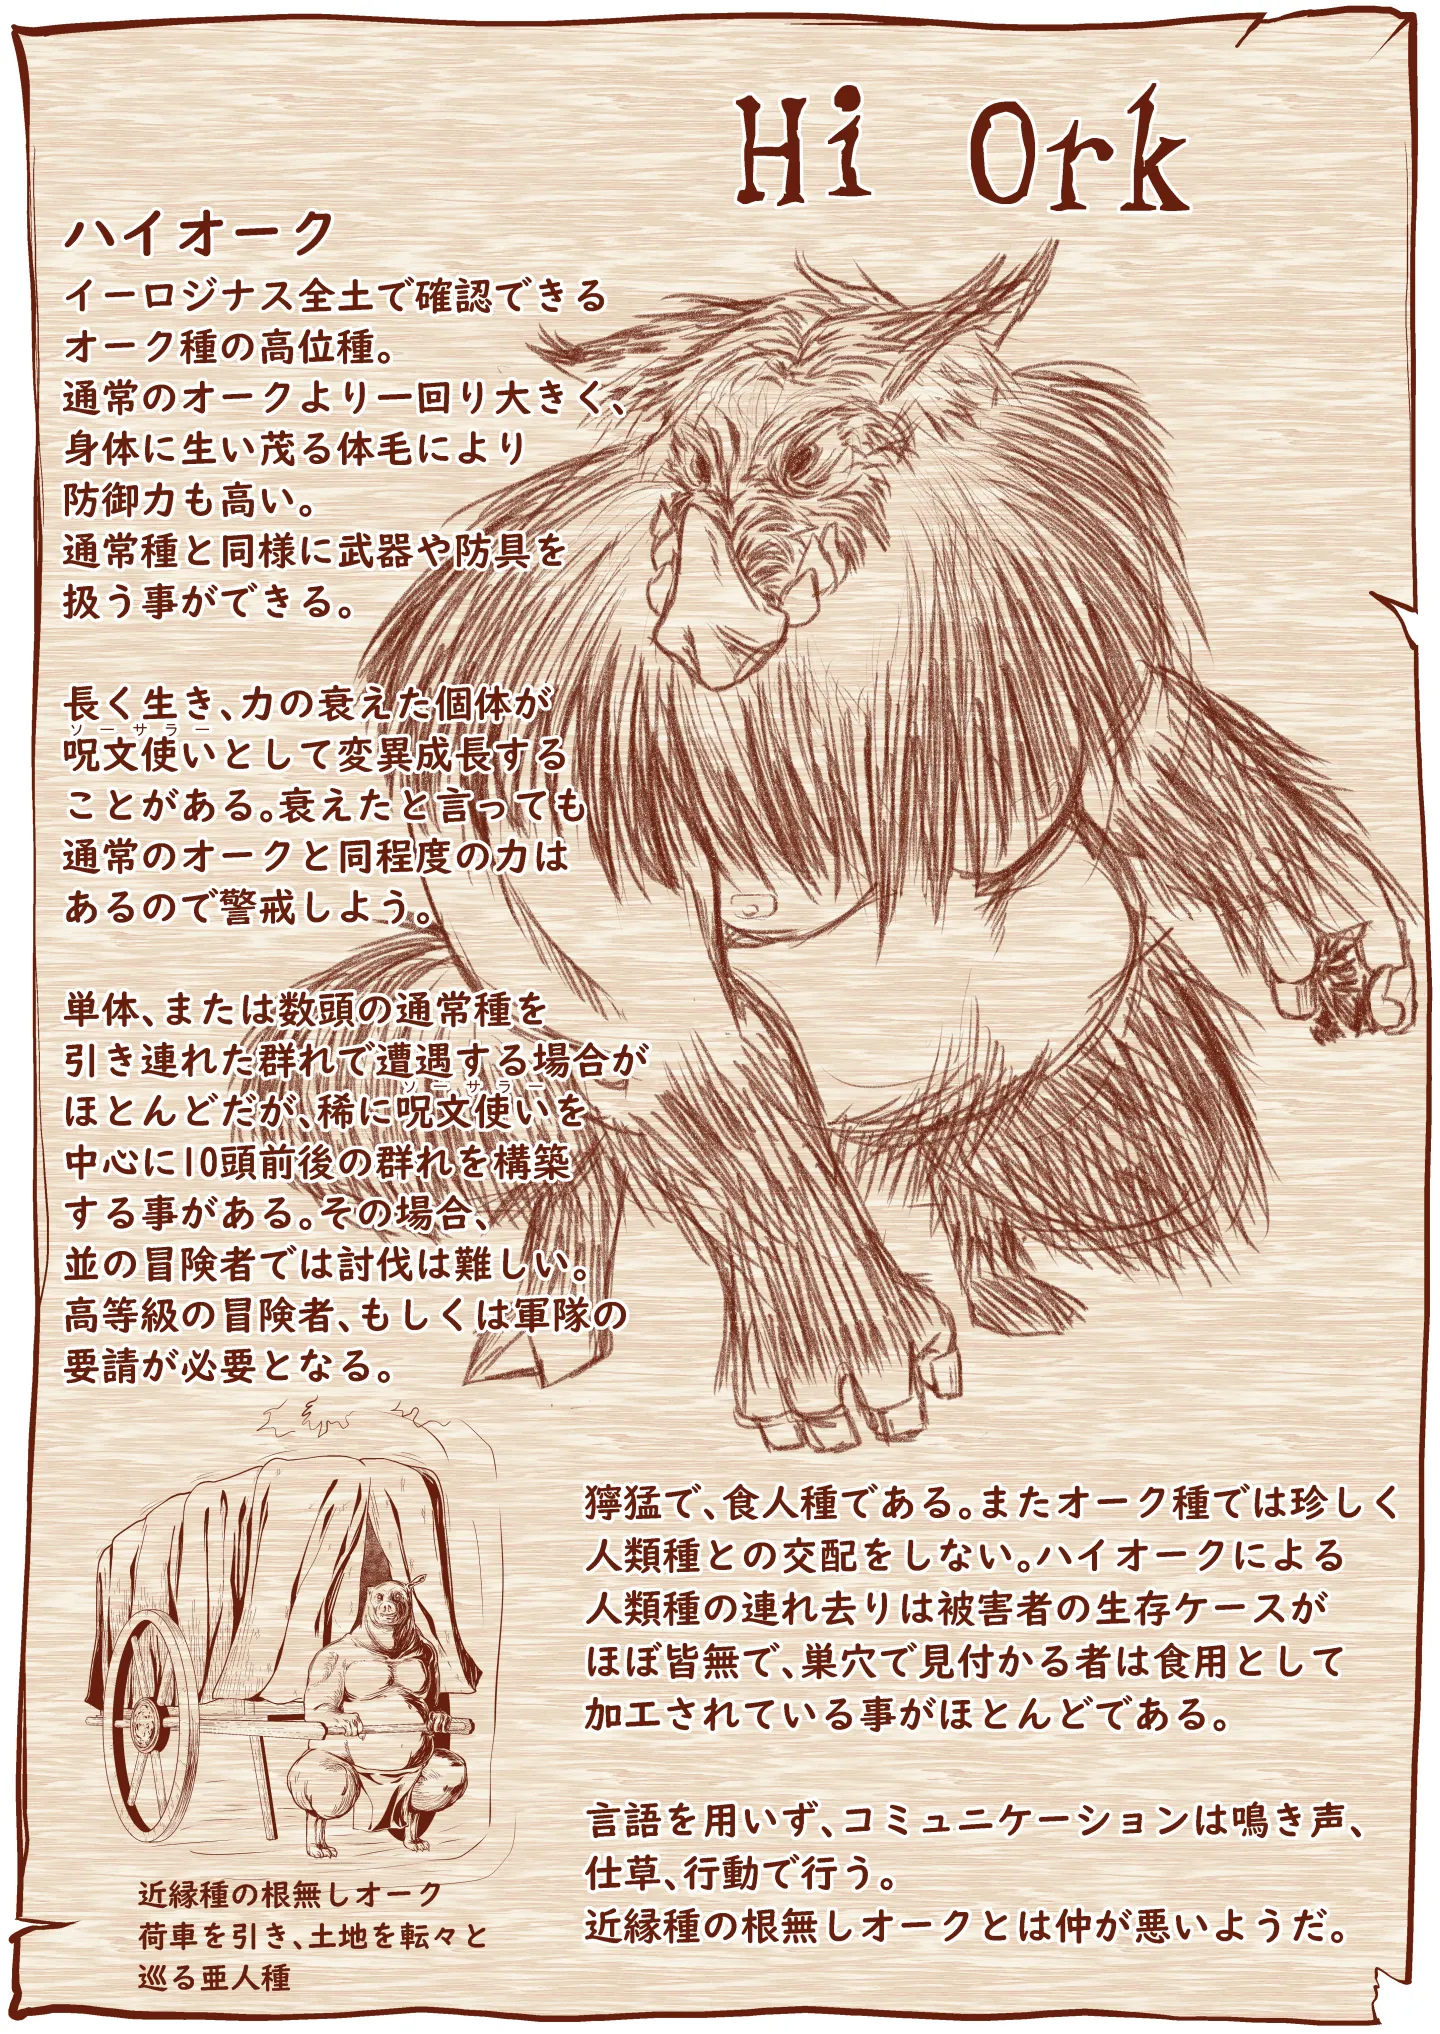 Hi Ork
ハイオーク
イーロジナス全土で確認できる
オーク種の高位種。
通常のオークより一回り大きく、
身体に生い茂る体毛により
防御力も高い。
通常種と同様に武器や防具を
扱う事ができる。
長く生き、力の衰えた個体が
ソーサラー
呪文使いとして変異成長する
ことがある。衰えたと言っても
通常のオークと同程度の力は
あるので警戒しよう。
単体、または数頭の通常種を
引き連れた群れで遭遇する場合が
ソーサラー
ほとんどだが、稀に呪文使いを
中心に10頭前後の群れを構築
する事がある。その場合、
並の冒険者では討伐は難しい。
高等級の冒険者、もしくは軍隊の
要請が必要となる。
獰猛で、食人種である。またオーク種では珍しく
人類種との交配をしない。ハイオークによる
人類種の連れ去りは被害者の生存ケースが
ほぼ皆無で、巣穴で見付かる者は食用として
加工されている事がほとんどである。
言語を用いず、コミュニケーションは鳴き声、
仕草、行動で行う。
近縁種の根無しオークとは仲が悪いようだ。
近縁種の根無しオーク
荷車を引き、土地を転々と
巡る亜人種